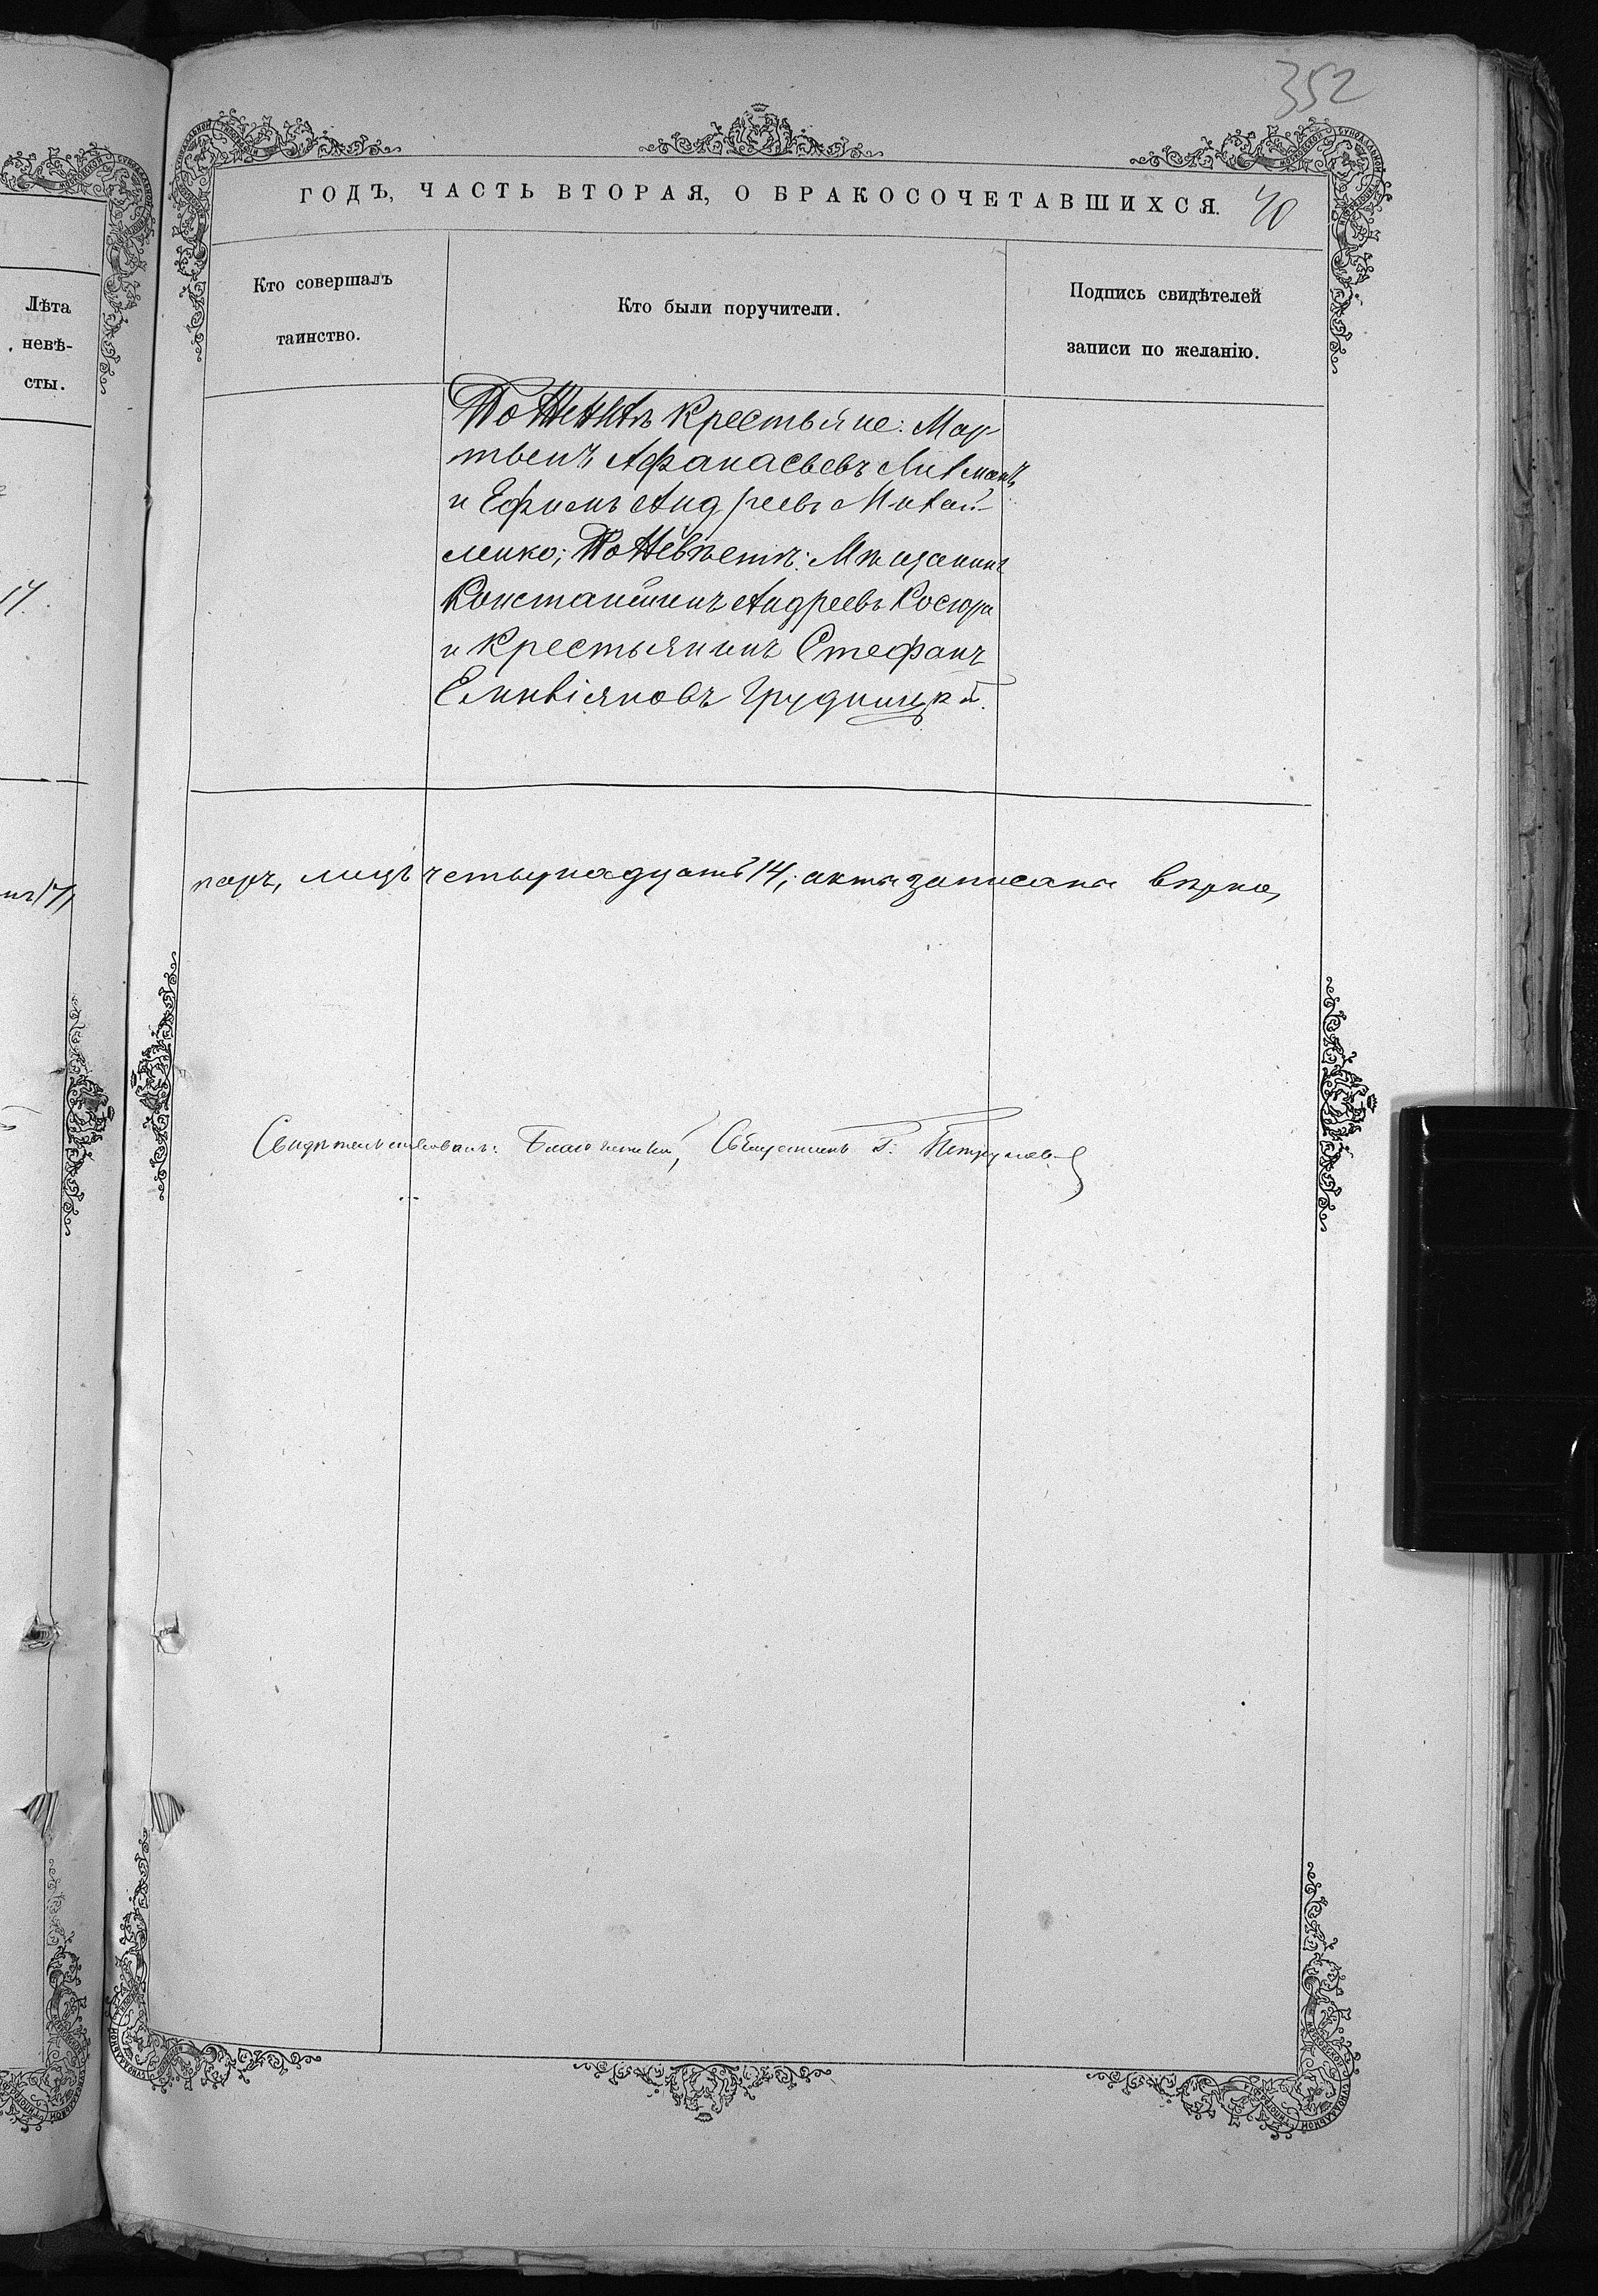 352
ГОДЪ, ЧАСТЬ ВТОРАЯ, О БРАКОСОЧЕТАВШИХСЯ. 40
Лѣта
невѣ-
сты.
Кто совершалъ
таинство.
Кто были поручители.
Подпись свидѣтелей
записи по желанію.
По Женихѣ крестьяне: Мар-
тынъ Афанасьевъ
и Ефимъ Андреевъ Михай-
ленко; По Невѣстѣ: Мѣщанинъ
Константинъ Андреевъ Косюра
и крестьянинъ Стефанъ
Грудницкій.
17.
паръ, лицъ четырнадцать 14; акты записаны вѣрно,
Свидѣтельствовалъ: Благочинный, Священникъ